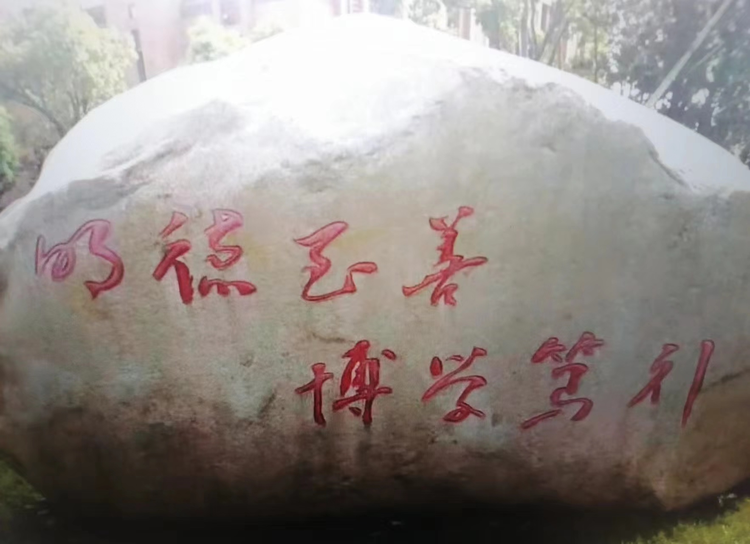 明德至善
博学笃礼